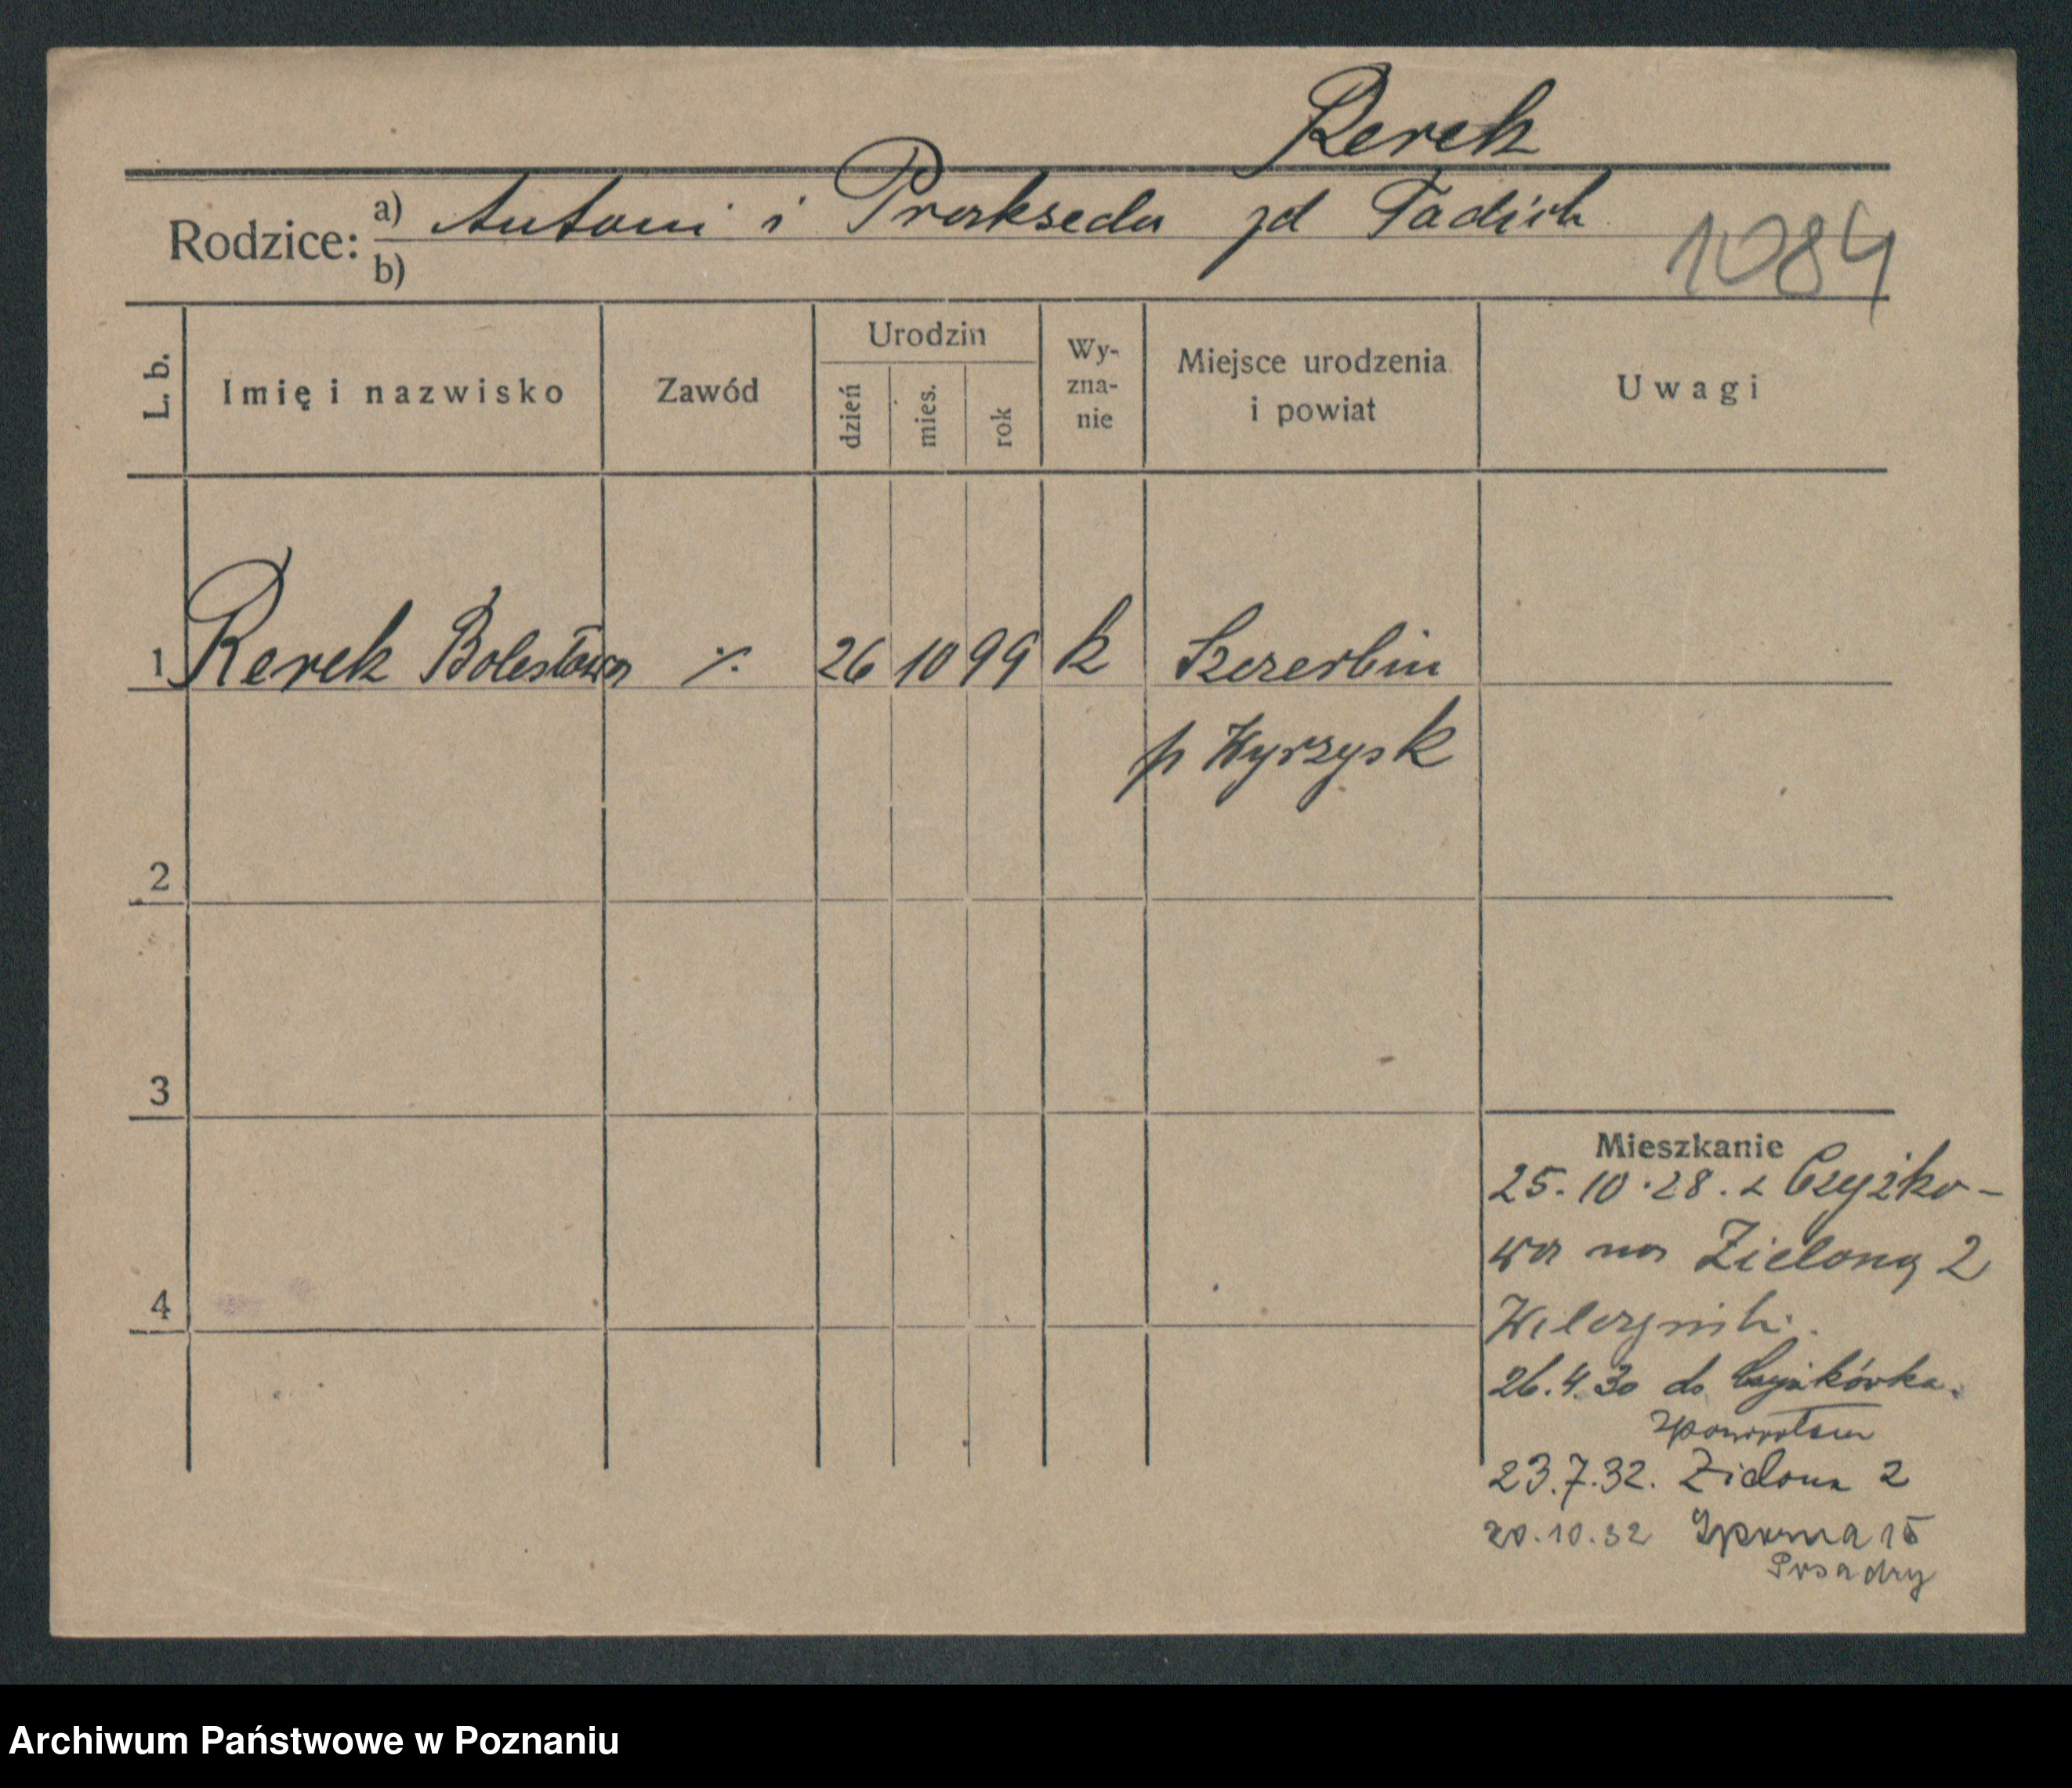 Rerek
Rodzice: a) Antoni i Prakseda zd Tadich
b)
1084
L. b.
Imię i nazwisko
Zawód
Urodzin
dzień
mies.
rok
Wy-
zna-
nie
Miejsce urodzenia
i powiat
Uwagi
1 Rerek Bolesława ٪ 26 10 99 k Szczerbin
p Wyrzysk
2
3
4
Mieszkanie
25.10.28. z Czyżko-
wa na Zieloną 2
26.4.30 do Czyżkówka.
zpowrotem
23.7.32. Zielona 2
20.10.32 15
Posadzy
Archiwum Państwowe w Poznaniu